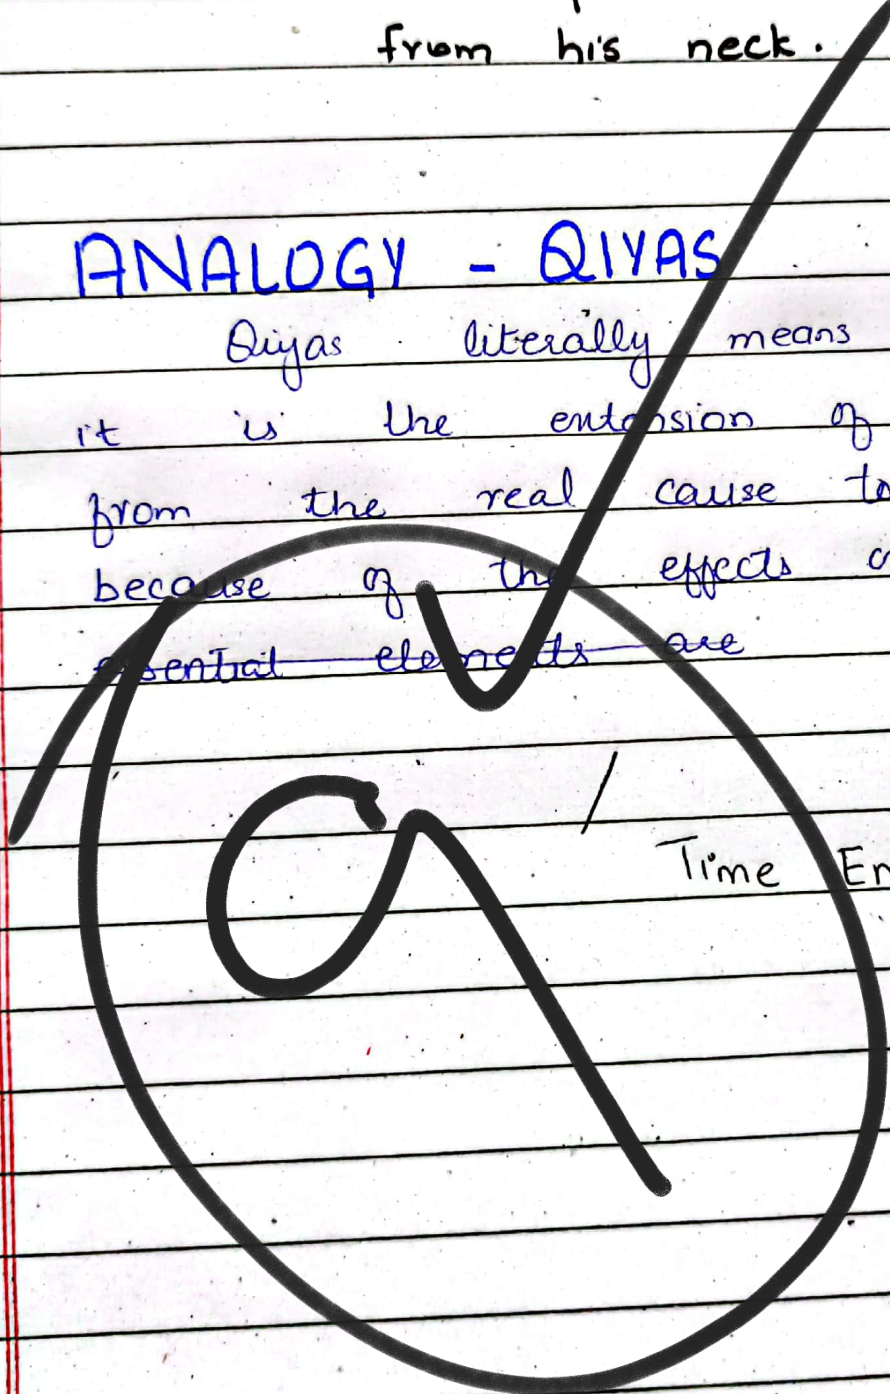 from his neck.
ANALOGY - QIYAS
Qiyas literally means
it is the entension of
from the real cause to
because of the effects
essential elements are
Time
9